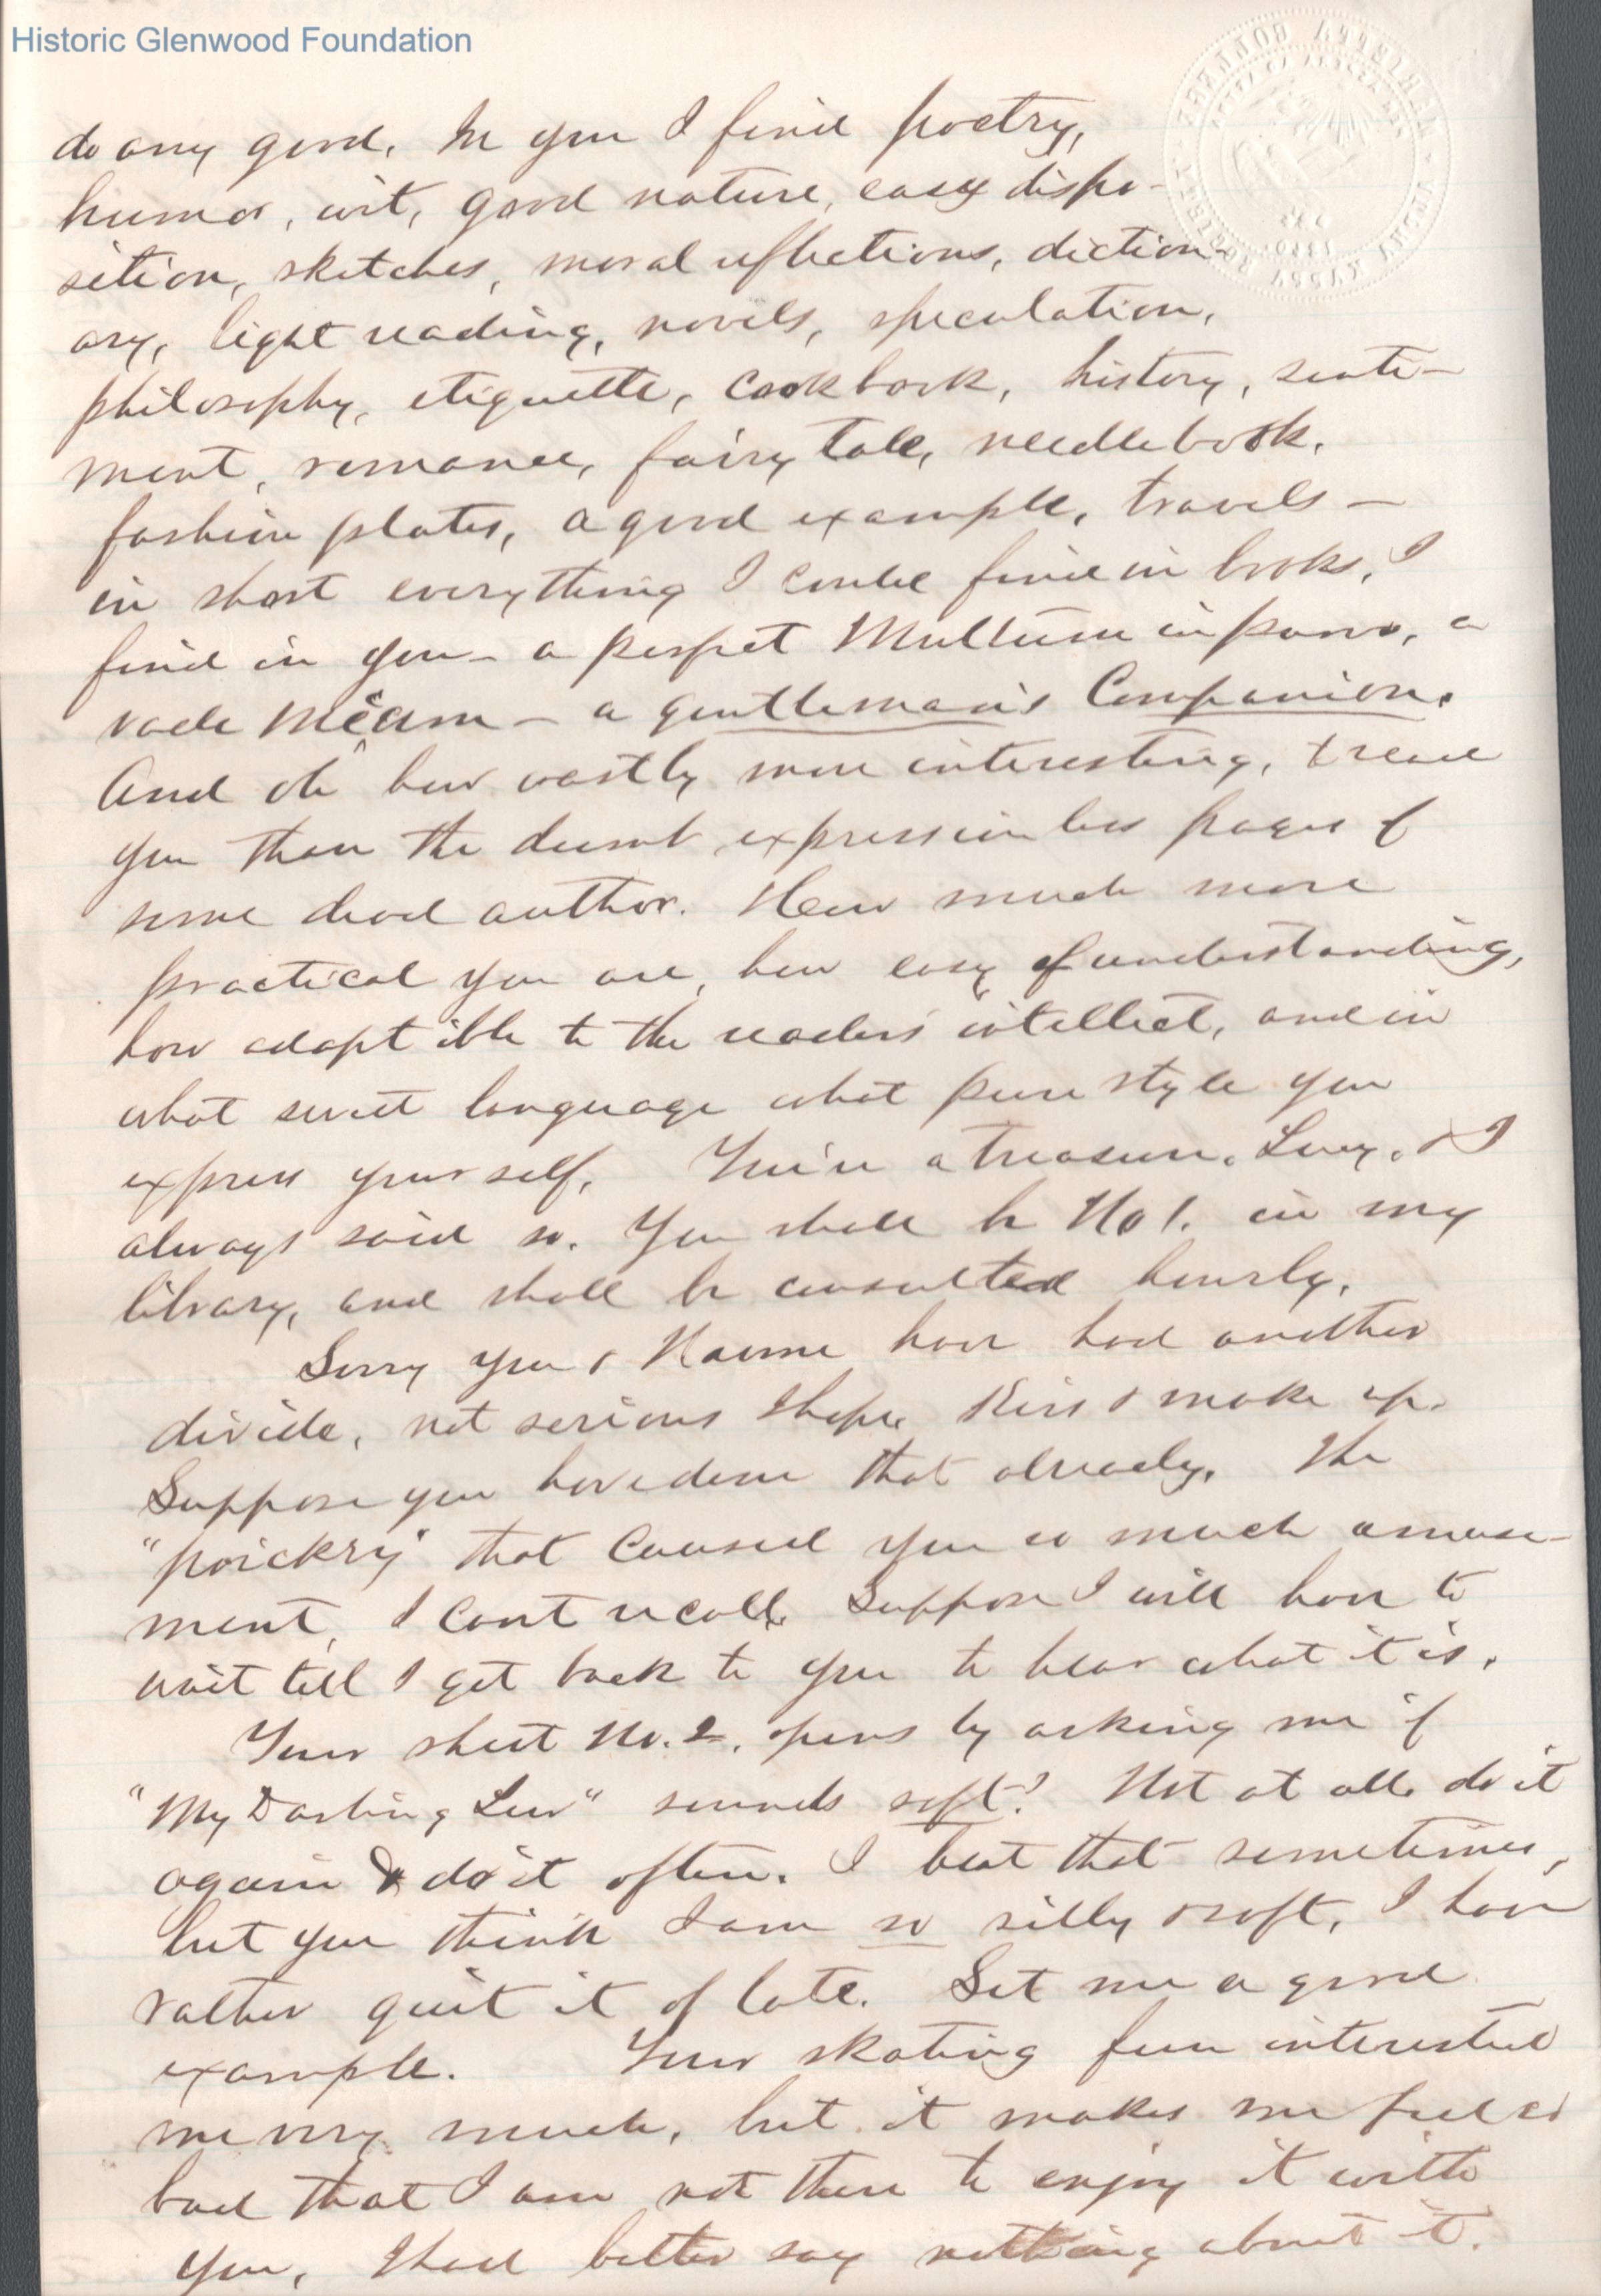 Historic Glenwood Foundation
do any good. In you I find poetry,
humor, wit, good nature, easy dispo-
sition, sketches, moral reflections, diction-
ary, light reading, novels, speculation,
philosophy, etiquette, cookbook, history, senti-
ment, romance, fairy tale, needlebook,
fashion plates, a good example, travels —
in short everything I could find in books, I
find in you — a perfect Multum in parvo, a
vade mecum — a gentleman's Companion.
And oh how vastly more interesting, to read
you than the dumb expressionless pages of
some dead author. How much more
practical you are, how easy of understanding,
how adaptible to the readers intellect, and in
what sweet language what pure style you
express yourself. You're a treasure, Lucy, & I
always said so. You shall be No 1. in my
library, and shall be consulted hourly.
Sorry you & have had another
divide, not serious I hope. Kiss & make up.
Suppose you have done that already. The
that caused you so much amuse-
ment, I cant recall. Suppose I will have to
wait till I get back to you to hear what it is.
Your sheet No. 2. opens by asking me if
"My Darling Luv" sounds soft? Not at all. do it
again & do it often. I beat that sometimes,
but you think I am so silly & soft, I have
rather quit it of late. Set me a good
example. Your skating fun interested
me very much, but it makes me feel so
bad that I am not there to enjoy it with
you, I had better say nothing about it.